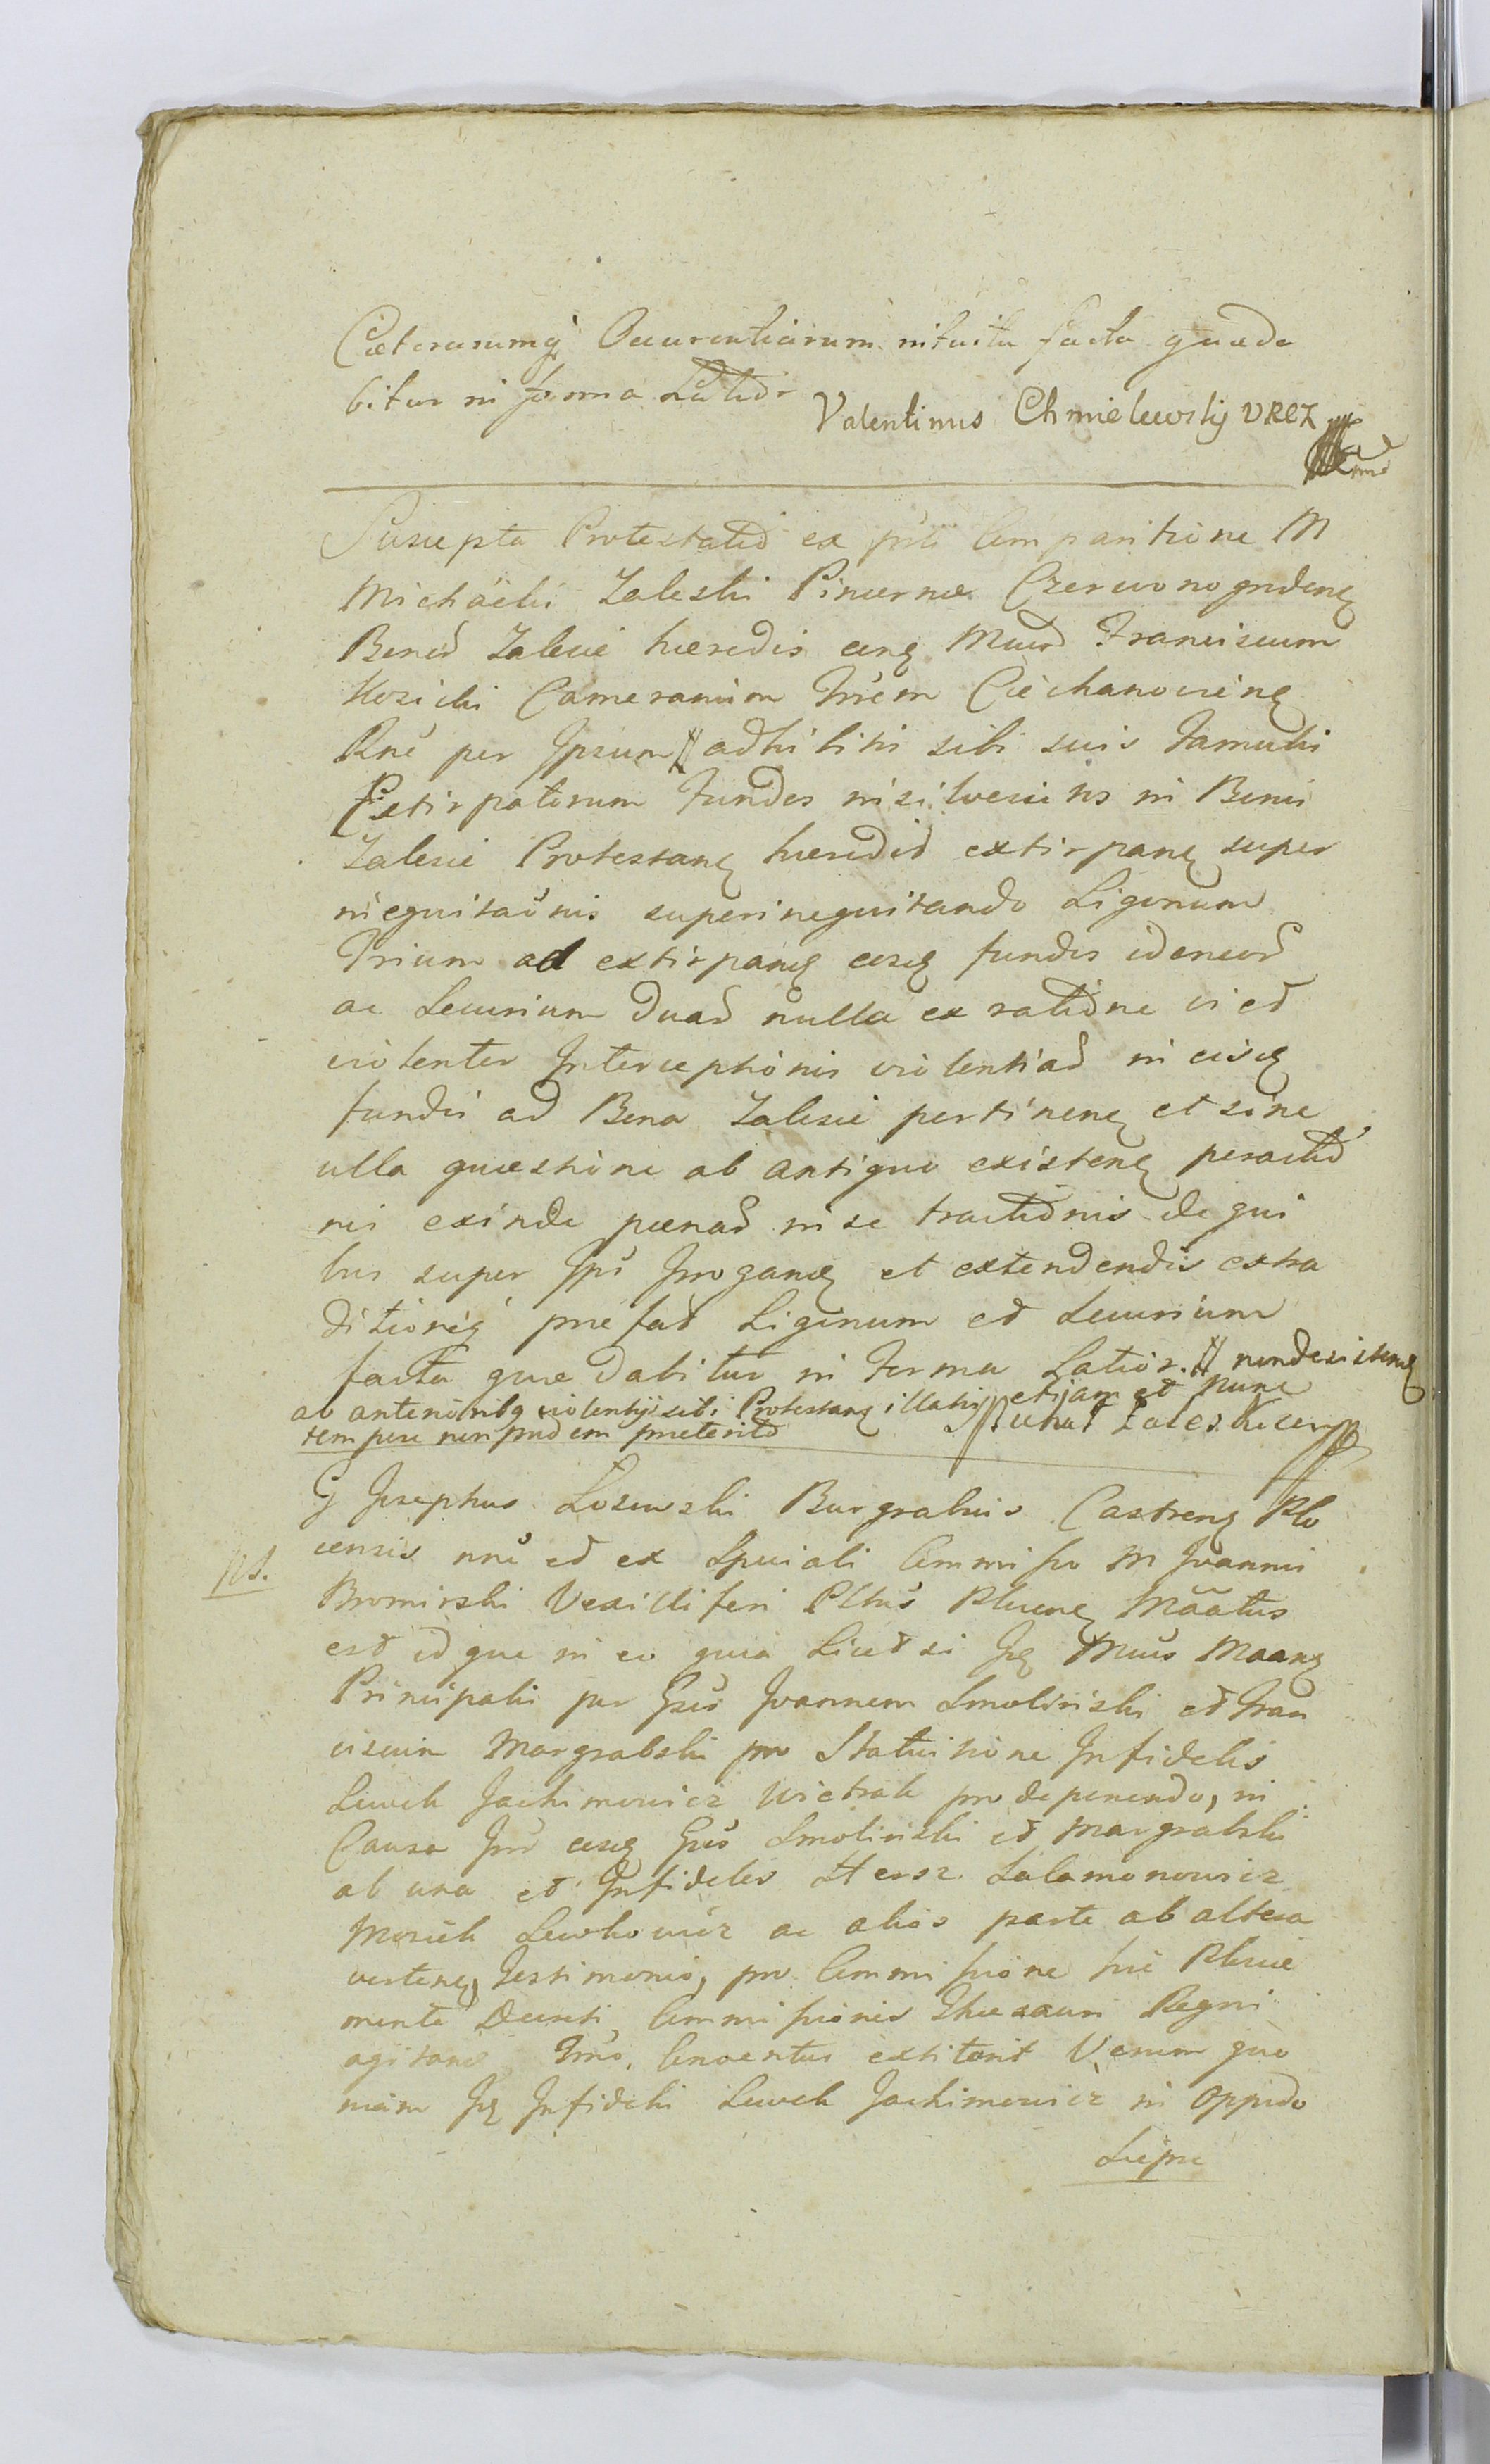 Cæterarumq̃ Occurentiarum intuitu facta quæ da
bitur in forma Latior
Valentinus Chmielewskij VRCZ
Suscepta Protestatio ex prti Comparitione M
Michaelis Zaleski Pincernæ Czerwonogrdens
Bonor Zalesie hæredis cong Mcum Franciscum
Kozicki Camerarium Trrem Ciechanoviens
Rne per Ipsum // adhibitis sibi suis Famulis
Extirpatorum Fundos in silvescitis in Bonis
Zalesie Protestans hæredit extirpans super
inequitaõnis superinequitando Ligonum
Trium ad extirpans eosq fundos idoneor
ac Securium duar nulla ex ratione vi et
violenter Interceptionis violentiar in eisq
fundis ad Bona Zalesie pertinens et sine
ulla quæstione ab antiquo existens peractio
nis exinde pœnar in se tractionis de qui
bus super Ips Irrogans et extendendis extra
ditioneq præfat Ligonum et Securium
facta quæ dabitur in Forma Latior. // non desistens
ab anterioribq violentijs sibi Protestanq illatis etjam et nunc
tempore non pridem præterito
Michał Zaleski
G Josephus Losewski Burgrabius Castrens Plo
censis nrõ et ex Speciali Commisso M Joannis
Bromirski Vexilliferi Pltus Plocens Mããtus
est idque in eo quia Licet si Is Mcus Maans
Principalis per Gsos Joannem Smolinski et Fran
ciscum Margrabski pro Statuitione Infidelis
Lewek Jachimowicz Wictrak pro deponendo, in
Causa Inr eosq Gsos Smolinski et Margrabski
ab una et Infideles Hersz Salamonowicz
Mosiek Lewkowicz ac alios parte ab altera
vertens, Testimonio, pro Commissione hic Plocie
mente Decreti Commissionis Thesauri Regni
agitans Trro. Conventus extiterit Verum quo
niam Is Infidelis Lewek Jachimowicz in Oppido
Liepne